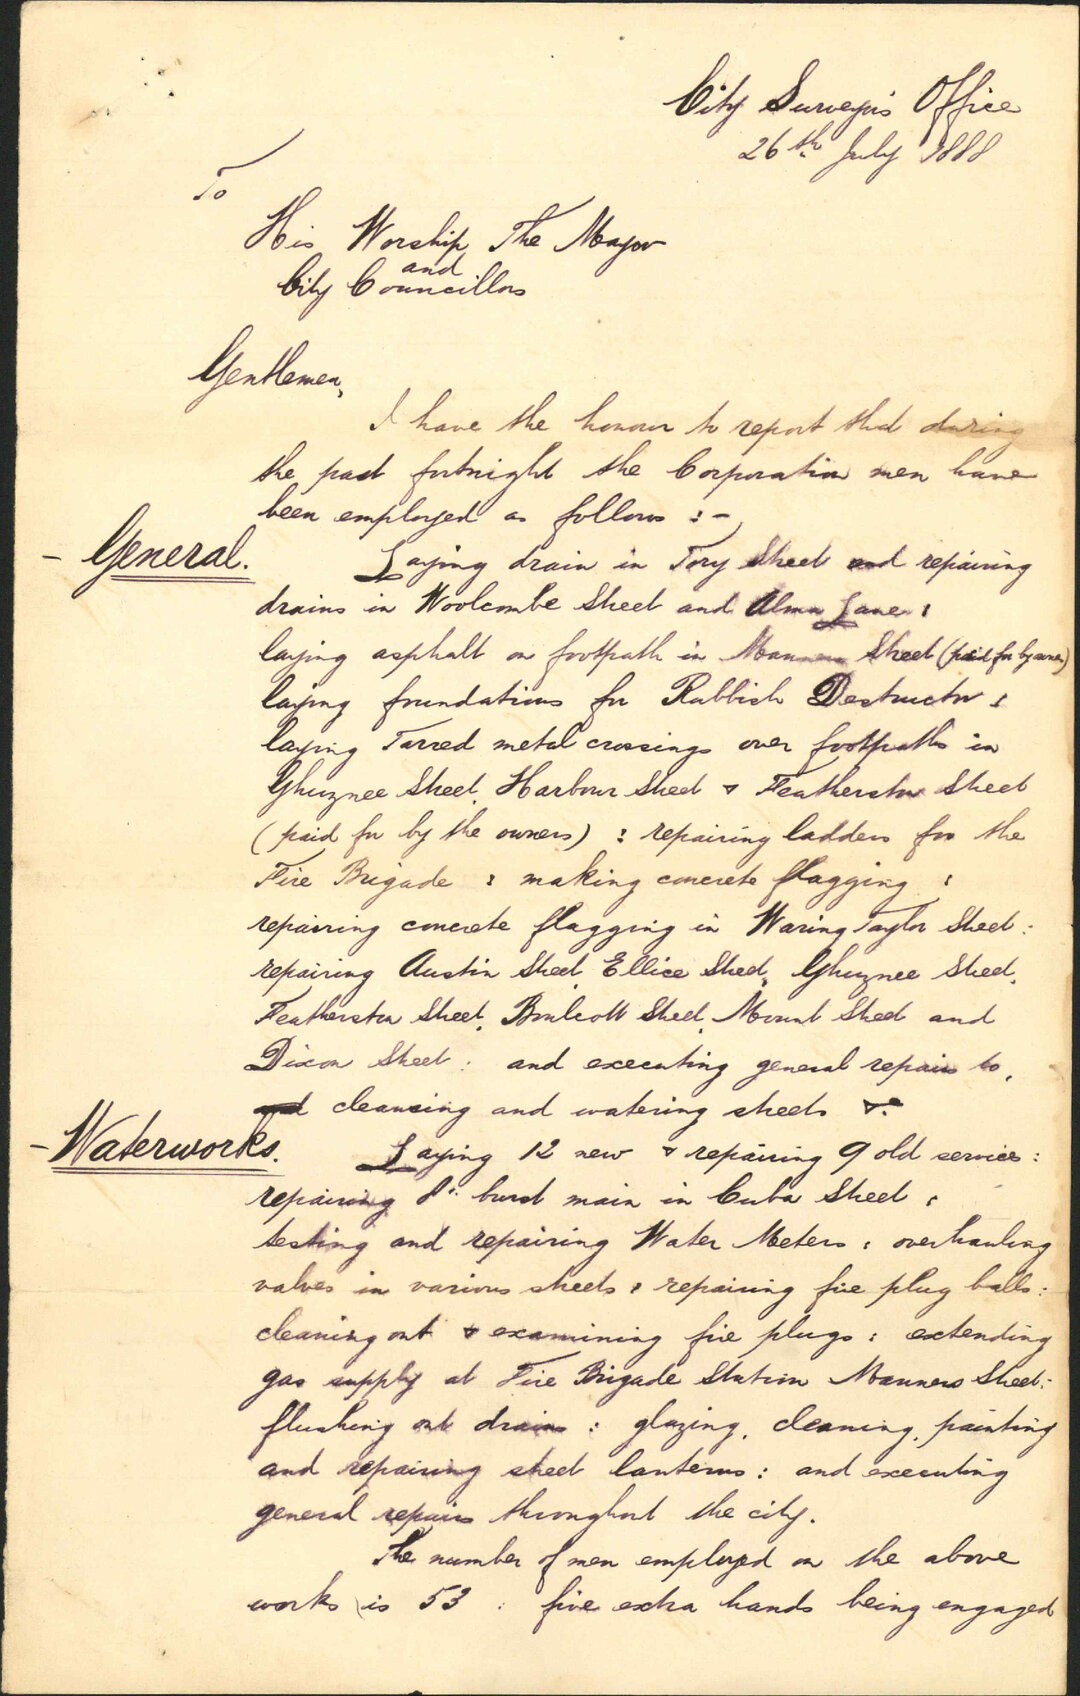 City Surveyor's Office
26th July 1888
To
His Worship The Mayor
and
City Councillors
Gentlemen,
I have the honour to report that during
the past fortnight the Corporation men have
been employed as follows :-
- General.
Laying drain in Tory Street and repairing
drains in Woolcombe Street and Alma Lane :
laying asphalt on footpath in Manners Street (paid for by owner)
laying foundations for Rubbish Destructor :
laying Tarred metal crossings over footpaths in
Ghuznee Street, Harbour Street & Featherston Street
(paid for by the owners) : repairing ladders for the
Fire Brigade : making concrete flagging :
repairing concrete flagging in Waring Taylor Street :
repairing Austin Street, Ellice Street, Ghuznee Street,
Featherston Street, Boulcott Street, Mount Street and
Dixon Street : and executing general repairs to,
and cleansing and watering streets &c
- Waterworks.
Laying 12 new & repairing 9 old services :
repairing 8" burst main in Cuba Street :
testing and repairing Water Meters : overhauling
valves in various streets : repairing fire plug balls :
cleaning out & examining fire plugs : extending
gas supply at Fire Brigade Station Manners Street :
flushing out drains : glazing, cleaning, painting
and repairing street lanterns : and executing
general repairs throughout the city.
The number of men employed on the above
works is 53 : five extra hands being engaged